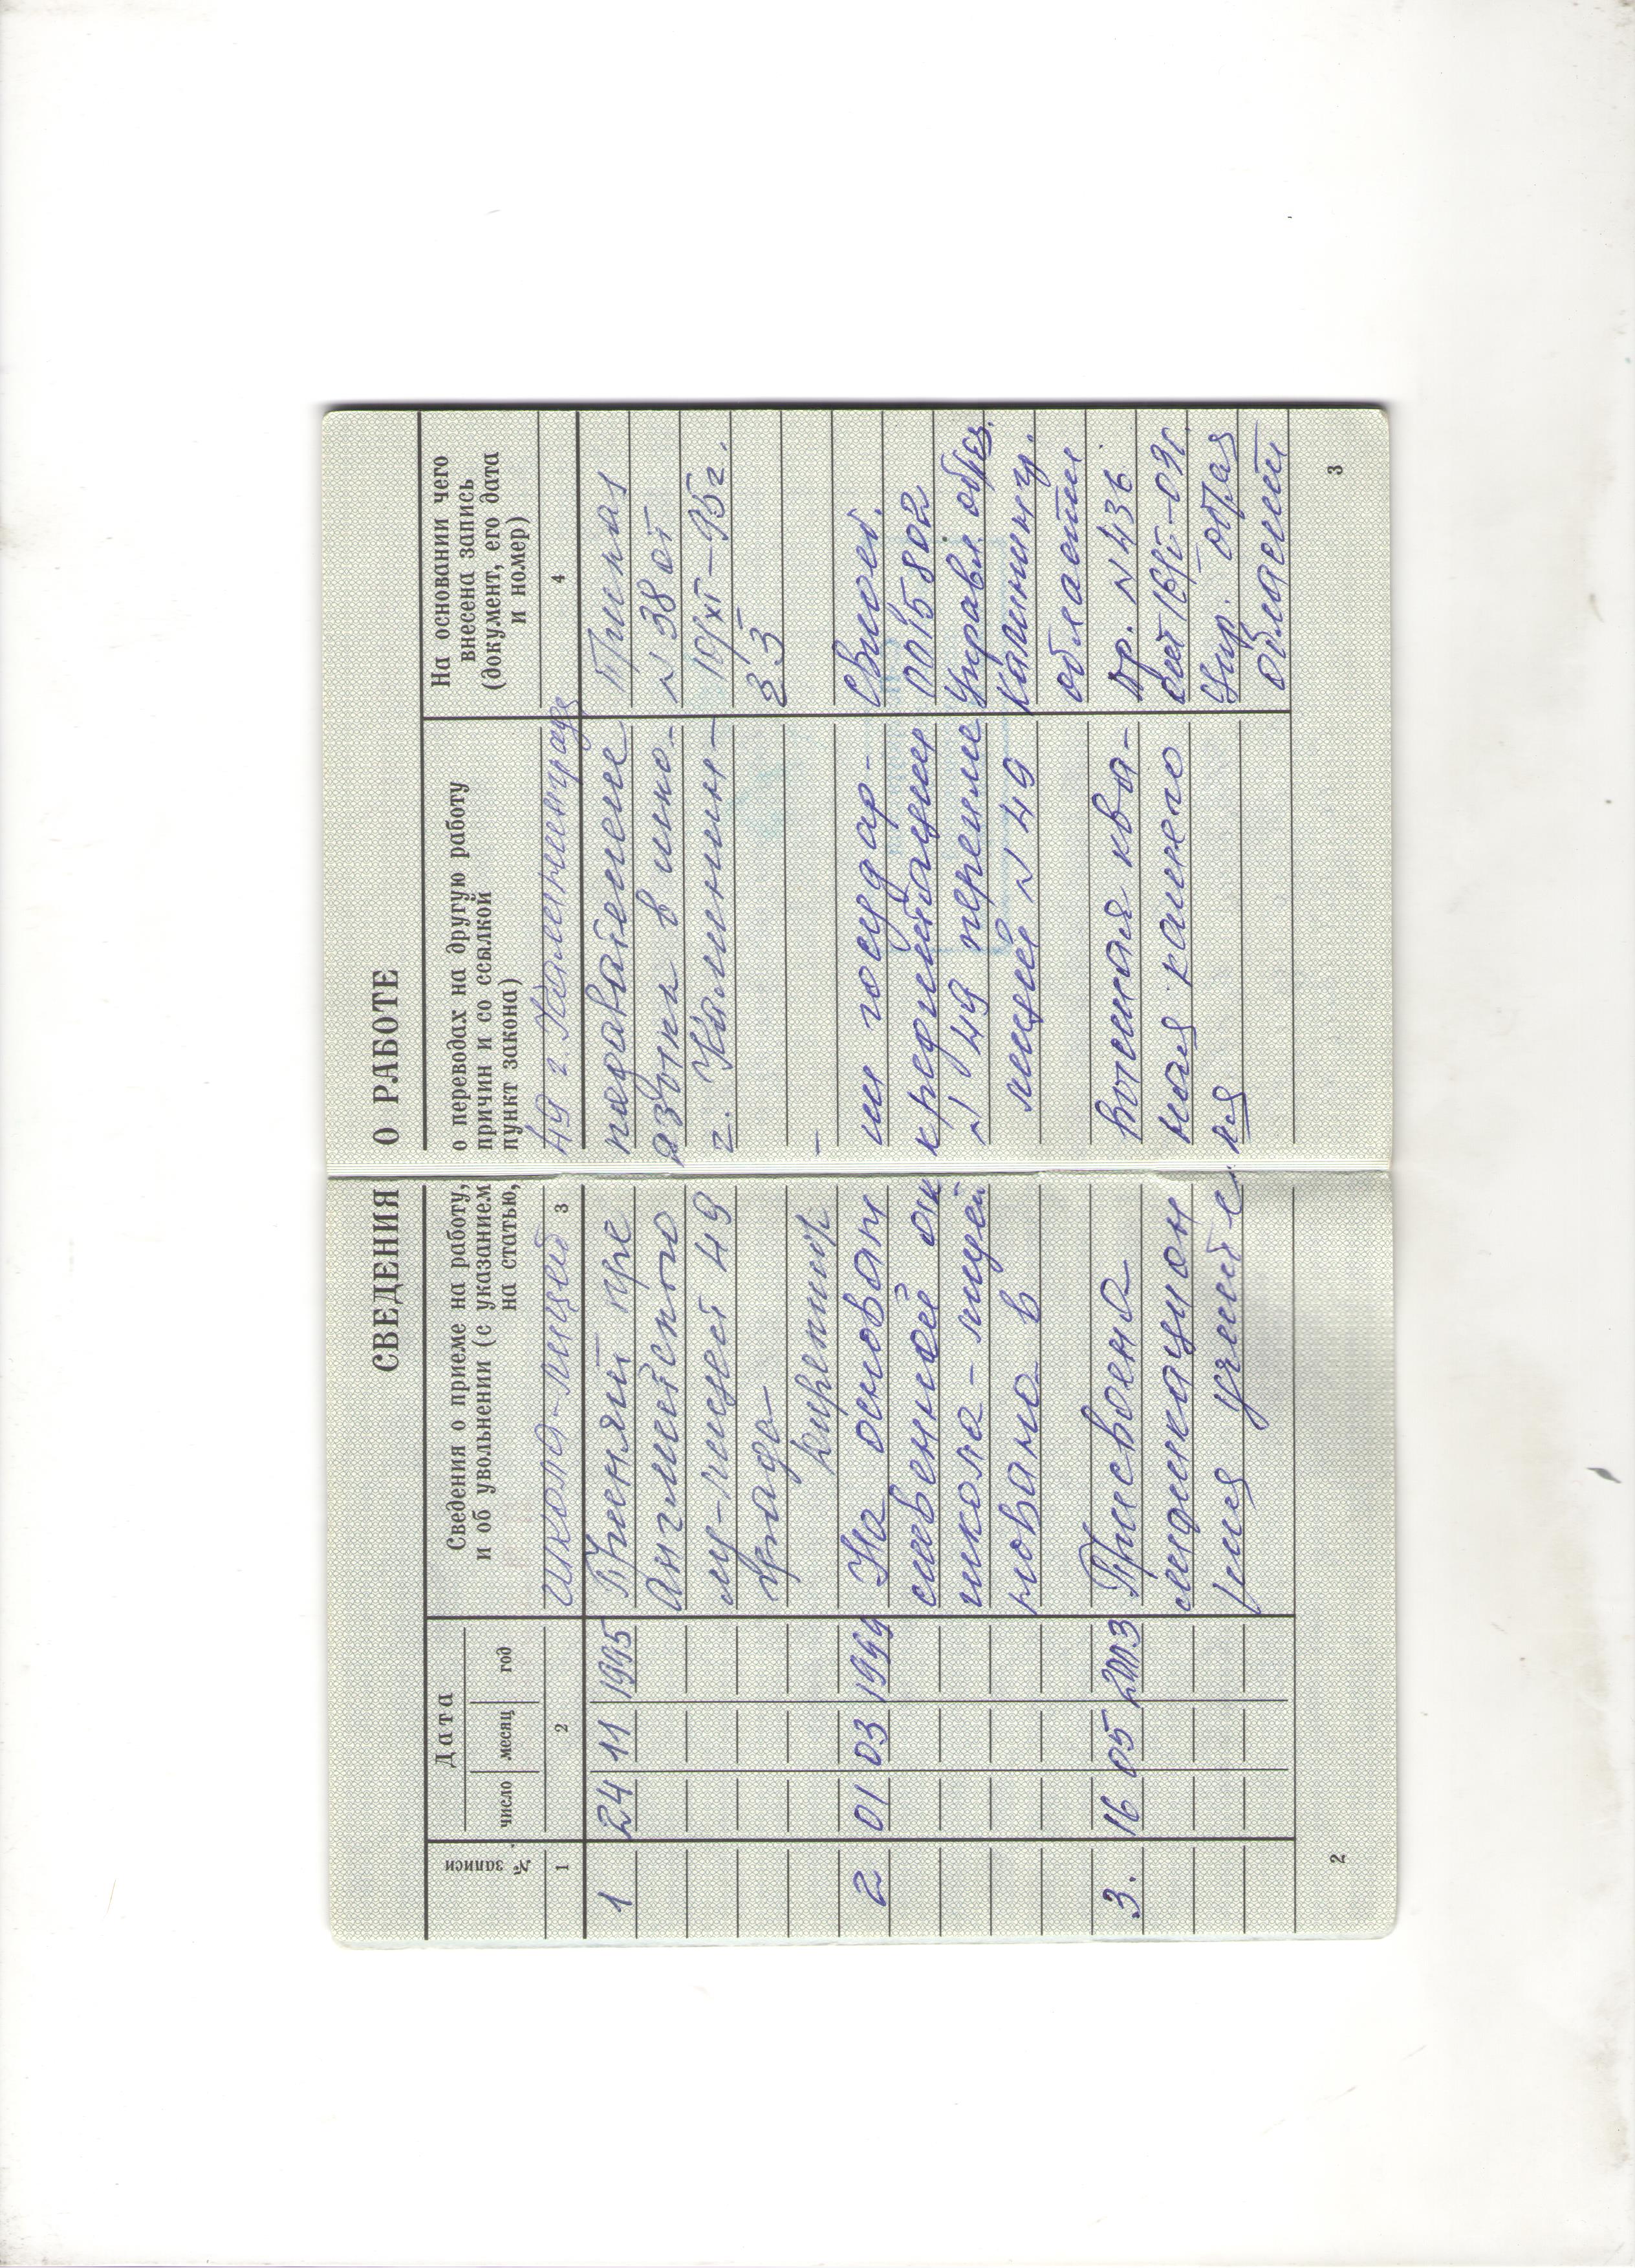 СВЕДЕНИЯ О РАБОТЕ
№ записи
Дата
число месяц год
Сведения о приеме на работу, о переводах на другую работу
и об увольнении (с указанием причин и со ссылкой
на статью, пункт закона)
На основании чего
внесена запись
(документ, его дата
и номер)
1 2 3 4
школа-лицей 49 г. Калининграда
1 24 11 1995 Принят преподавателем Приказ
Английского языка в шко- N 38 от
лу-лицей 49 г. Калинин- 10/XI-95г.
града
2 01 03 1999 На основании государ- Свидет.
ственной аккредитации 0015802
школа-лицей N 49 переиме Управл. образ.
нована в лицей N 49 Калинингр.
области
3. 16 05 2003 Присвоена высшая ква- Пр. N 436
лификационная категория
учителя Упр. обраа
области
2
3